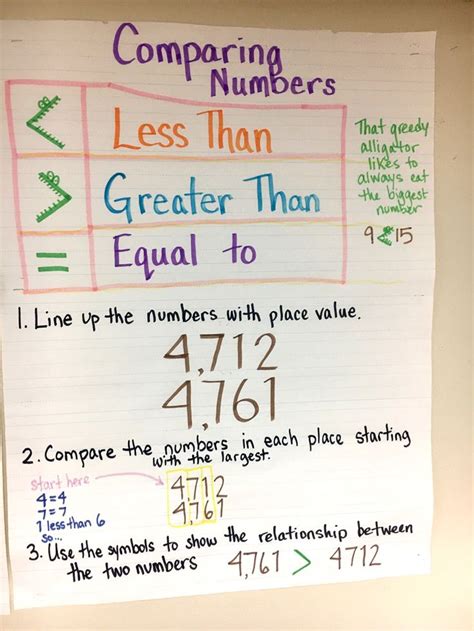 Comparing
Numbers
< Less Than
> Greater Than
= Equal to
That greedy
alligator
likes to
always eat
the biggest
number
9 < 15
1. Line up the numbers with place value.
4,712
4,761
2. Compare the numbers in each place starting
with the largest.
start here
4=4
7=7
1 less than 6
so...
4,712
4,761
3. Use the symbols to show the relationship between
the two numbers 4,761 > 4712